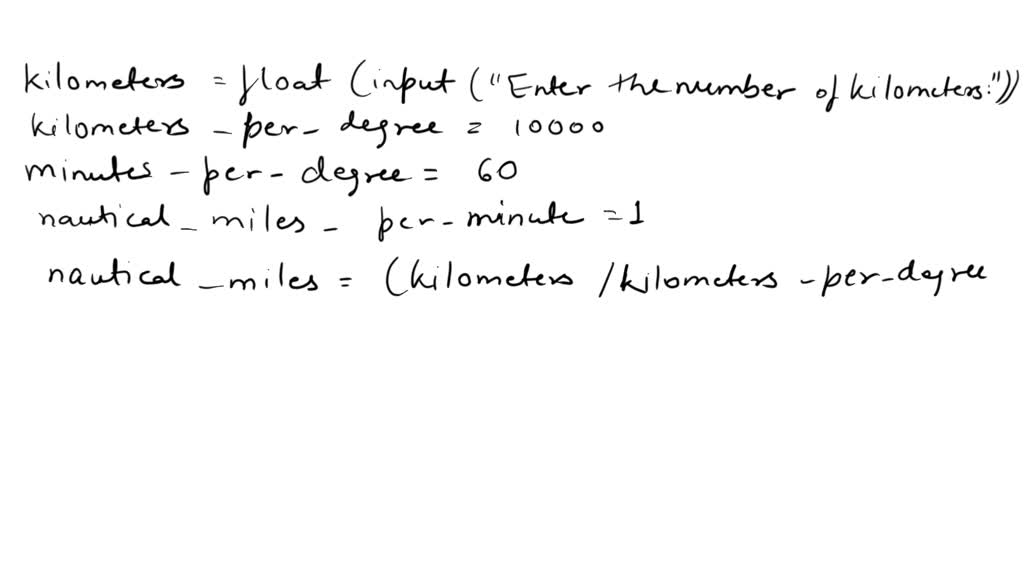 kilometers = float (input ("Enter the number of kilometers:"))
kilometers - per - degree = 10000
minutes - per - degree = 60
nautical _ miles - per - minute = 1
nautical _ miles = (kilometers / kilometers - per - degree